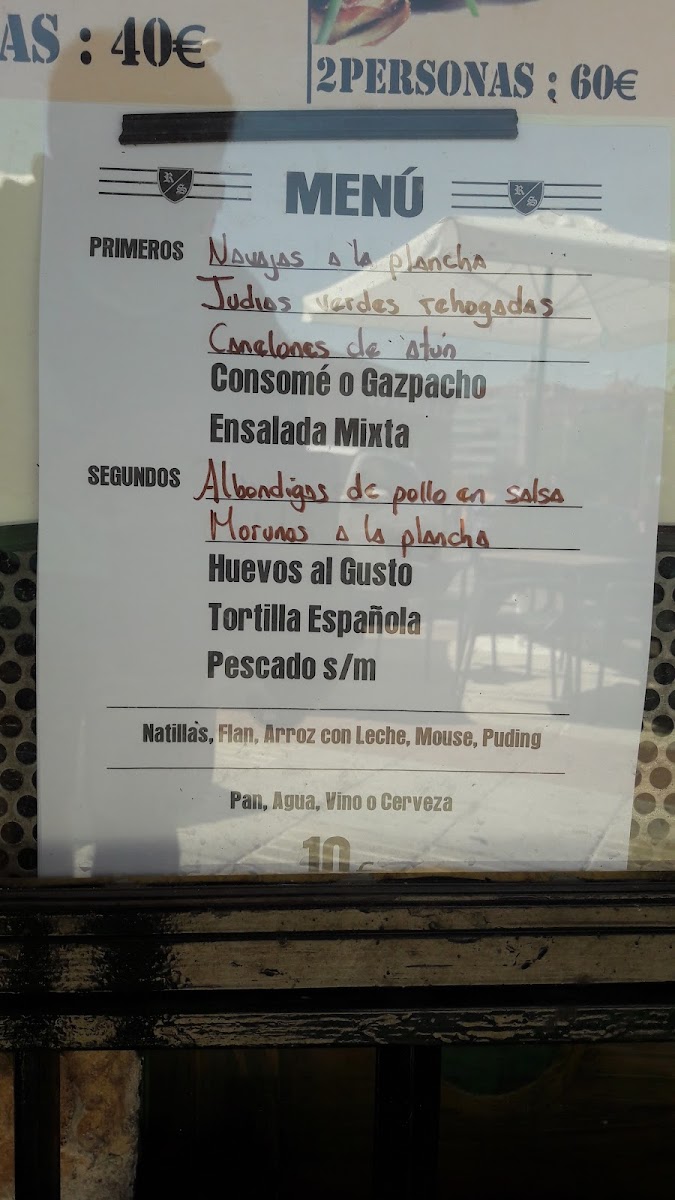 AS : 40€
2PERSONAS : 60€
R S MENÚ R S
PRIMEROS Navajas a la plancha
Judias verdes rehogadas
Canelones de atún
Consomé o Gazpacho
Ensalada Mixta
SEGUNDOS Albondigas de pollo en salsa
Morunos a la plancha
Huevos al Gusto
Tortilla Española
Pescado s/m
Natillas, Flan, Arroz con Leche, Mouse, Puding
Pan, Agua, Vino o Cerveza
10 €